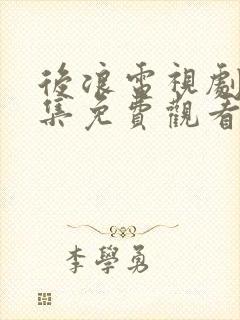 後浪電視劇
集免費觀看
李學勇